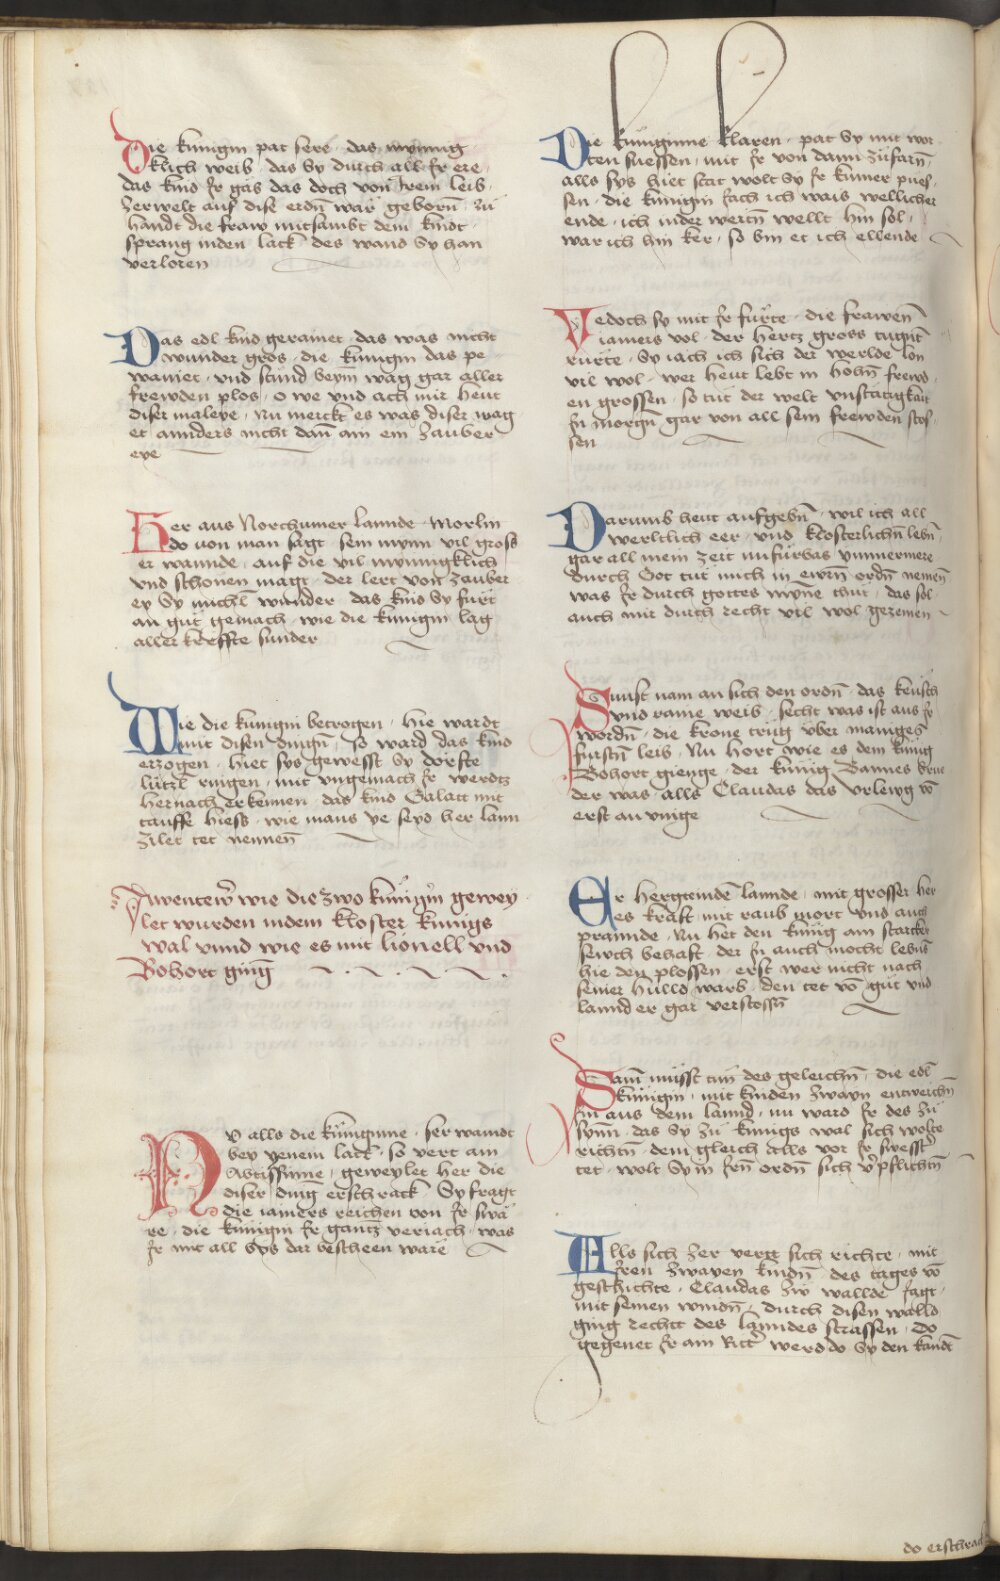 Die kunigin pat sere · das mynnig
klich weib · das Sy durch all Ir ere ·
das kind Ir gäb das doch von Irem leib ·
Zerwelt auf dise erdn̄ wär geborn̄ · zu
handt die fraw mitsambt dem kindt ·
sprang inden lack des wand Sy han
verloren
Das edl kind gerainet · das was nicht
wunder gros · die kunigin das pe
wainet · vnd stund beym wag gar aller
frewden plos · O we vnd ach mir heut
diser maleye · Nu merckt es was diser wag
et annders nicht dan̄ ain ein Zauber
eye
Her aus Norchumer lannde · Morlin
do von man sagt · sein mynn vil gross
er wannde · auf die vil mynnigklich
vnd schonen magt · der lert von Zauber
ey Sy michl wunder · das kind Sy fürt
an gut gemach · wie die kunigin lag
aller kreffte sunder
Wie die kunigin betrogen · hie wardt
mit disen dingn̄ · so ward das kind
erzogen · hiet sys gewesst Sy dorffte
lützl ringen · mit vngemach Ir werdtz
hernach erkennen · das kind Galatt mit
tauffe hiess · wie mans ye seyd her lann
zilet tet nennen̄
Awentewr̄ wie die zwo kunigin̄ gewey
let wurden indem kloster kunigs
wal vnnd wie es mit lionell vnd
Bohort ginḡ
NV alls die küniginne · ser waindt
bey yenem lack · so vert ain
Abtissinne · geweylet her die
diser ding erschrack Sy fragt
die iamers reichen von Ir swä
re · die kunigin Ir gantz veriach · was
Ir mit all Sys dar bescheen wäre
Die küniginne klaren · pat Sy mit wor
ten suessen · mit Ir von dann zufarn̄ ·
alls sys hiet stat wolt Sy Ir kumer pues ·
sen · die kunigin sach ich wais wellicher
ende · ich inder wertn̄ wellt hin sol ·
war ich hin ker · so bin et ich ellende
Yedoch sy mit Ir fürte · die frawen̄
iamers vol · der hertz gross tugnt̄
rürte · Sy iach ich sich der werlde lon
vil wol · wer heut lebt in hohn̄ frewd
en grossen · so tüt der welt vnstätigkait
In morgn̄ gar von all sein frewden stos ·
sen
Darumb heut aufgebn̄ · wil ich all
werltlich eer · vnd klosterlichn̄ lebn̄ ·
gar all mein zeit nufürbas ymmermere
durch Got tüt mich in ewrn̄ ordn̄ nemen̄
was Ir durch gottes mynne thut · das sol
auch mir durch recht vil wol gezemen
Sunst nam an sich den ordn̄ · das keusch
vnd raine weib · secht was ist aus Ir
wordn̄ · die krone trüg über maniges
fürstn̄ leib · Nu hort wie es dem künig
Bohort gienge · der künig Bannes brue
der was · alls Claudas das vrlewg vō
erst an vinge
Er hergte in den lannde · mit grosser her
es kraft · mit raub mort vnd auch
prannde · Nu het den künig ain starcker
siech behaft · der In auch mocht lebns̄
hie den plossen · erst wer nicht nach
seiner hulld warb · den tet vō güt vnd
lannd er gar verstossn̄
Sam müsst tun̄ des geleichn̄ · die edl
künigin · mit kinden Zwayn entweichn̄
hin aus dem lannd · nu ward Ir des zü
synn̄ · das Sy zü kunigs wal sich wolte
richtn̄ · dem gleich alls vor Ir swesster
tet · wolt Sy in Irn̄ ordn̄ sich vr̄pflichtn̄
Alls sich Zer vertt sich richte · mit
Iren Zwayen kindn̄ · des tages vō
geschichte · Claudas Zw wallde Iagt ·
mit seinen windn̄ · durch disen walld
ging rechtt des lanndes strassen · Do
gegenet Ir ain Ritt̄ werd do Sy den kandt̄
do erschrack